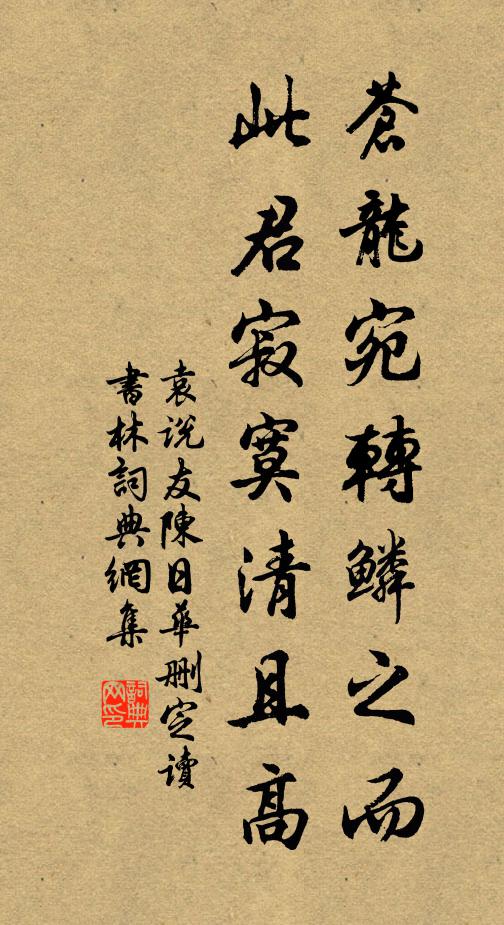 蒼龍宛轉鱗之而
此君寂寞清且高
袁说友陳日華删定读
書林詞典網集
詞典网印